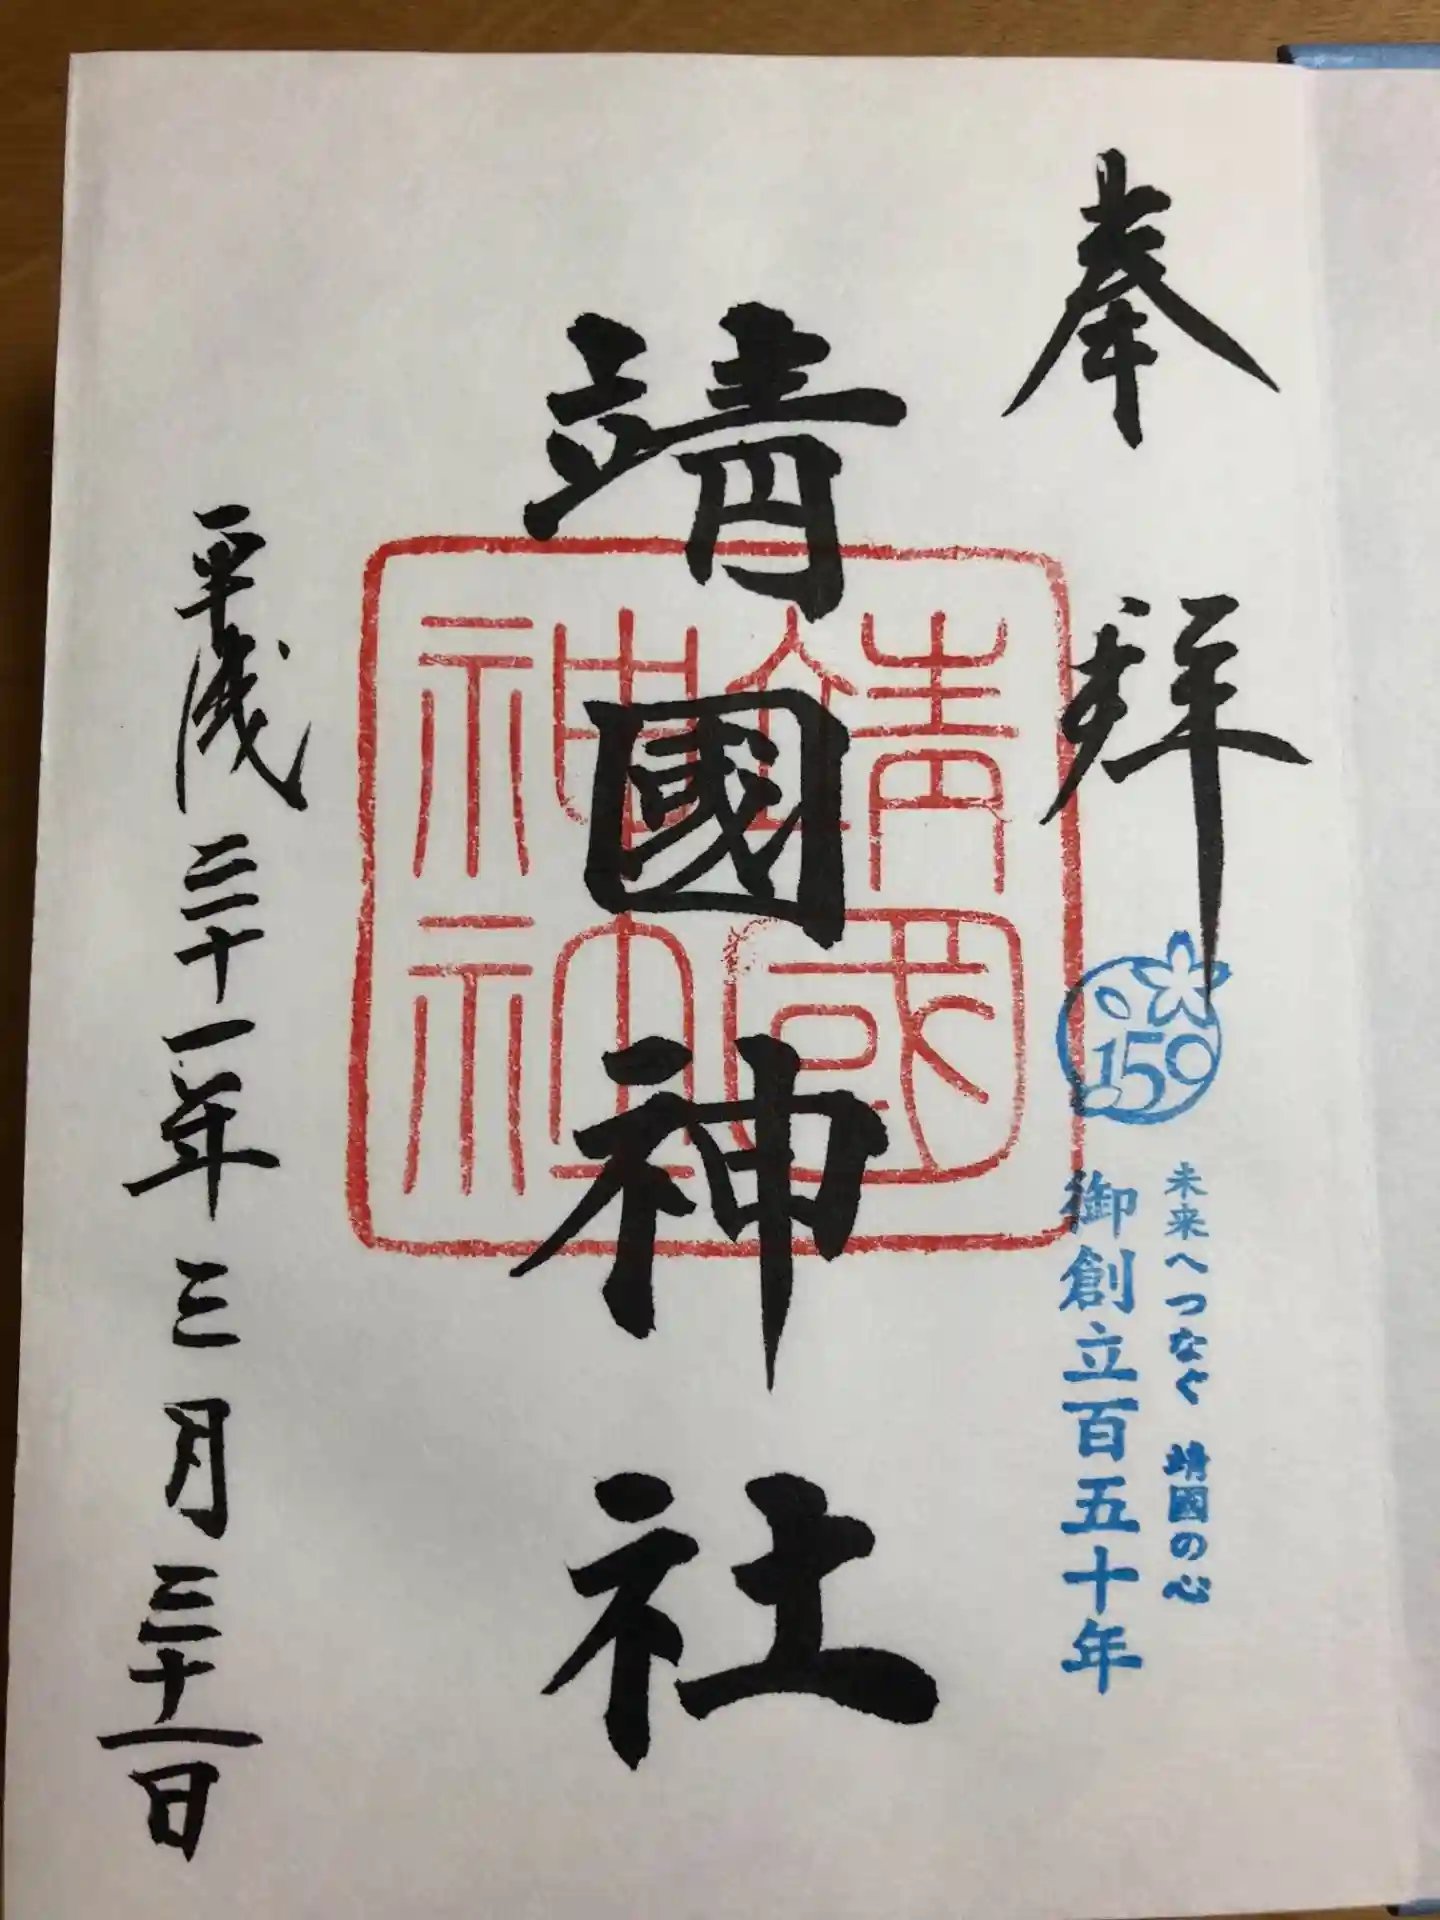 奉拝
150
未来へつなぐ 靖國の心
御創立百五十年
靖國神社
靖國神社
平成三十一年三月三十一日